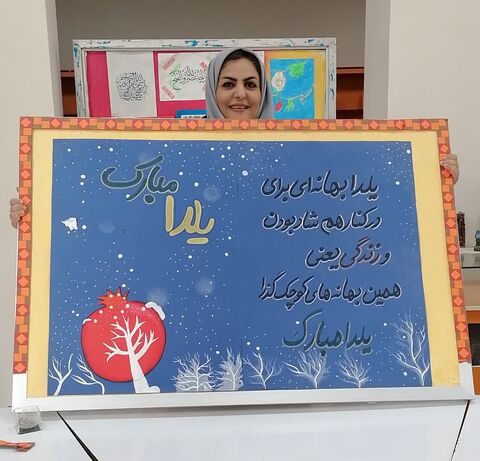 یلدا مبارک
یلدا بهانه‌ای برای
در کنار هم شاد بودن
و زندگی یعنی
همین بهانه های کوچک گذرا
یلدا مبارک